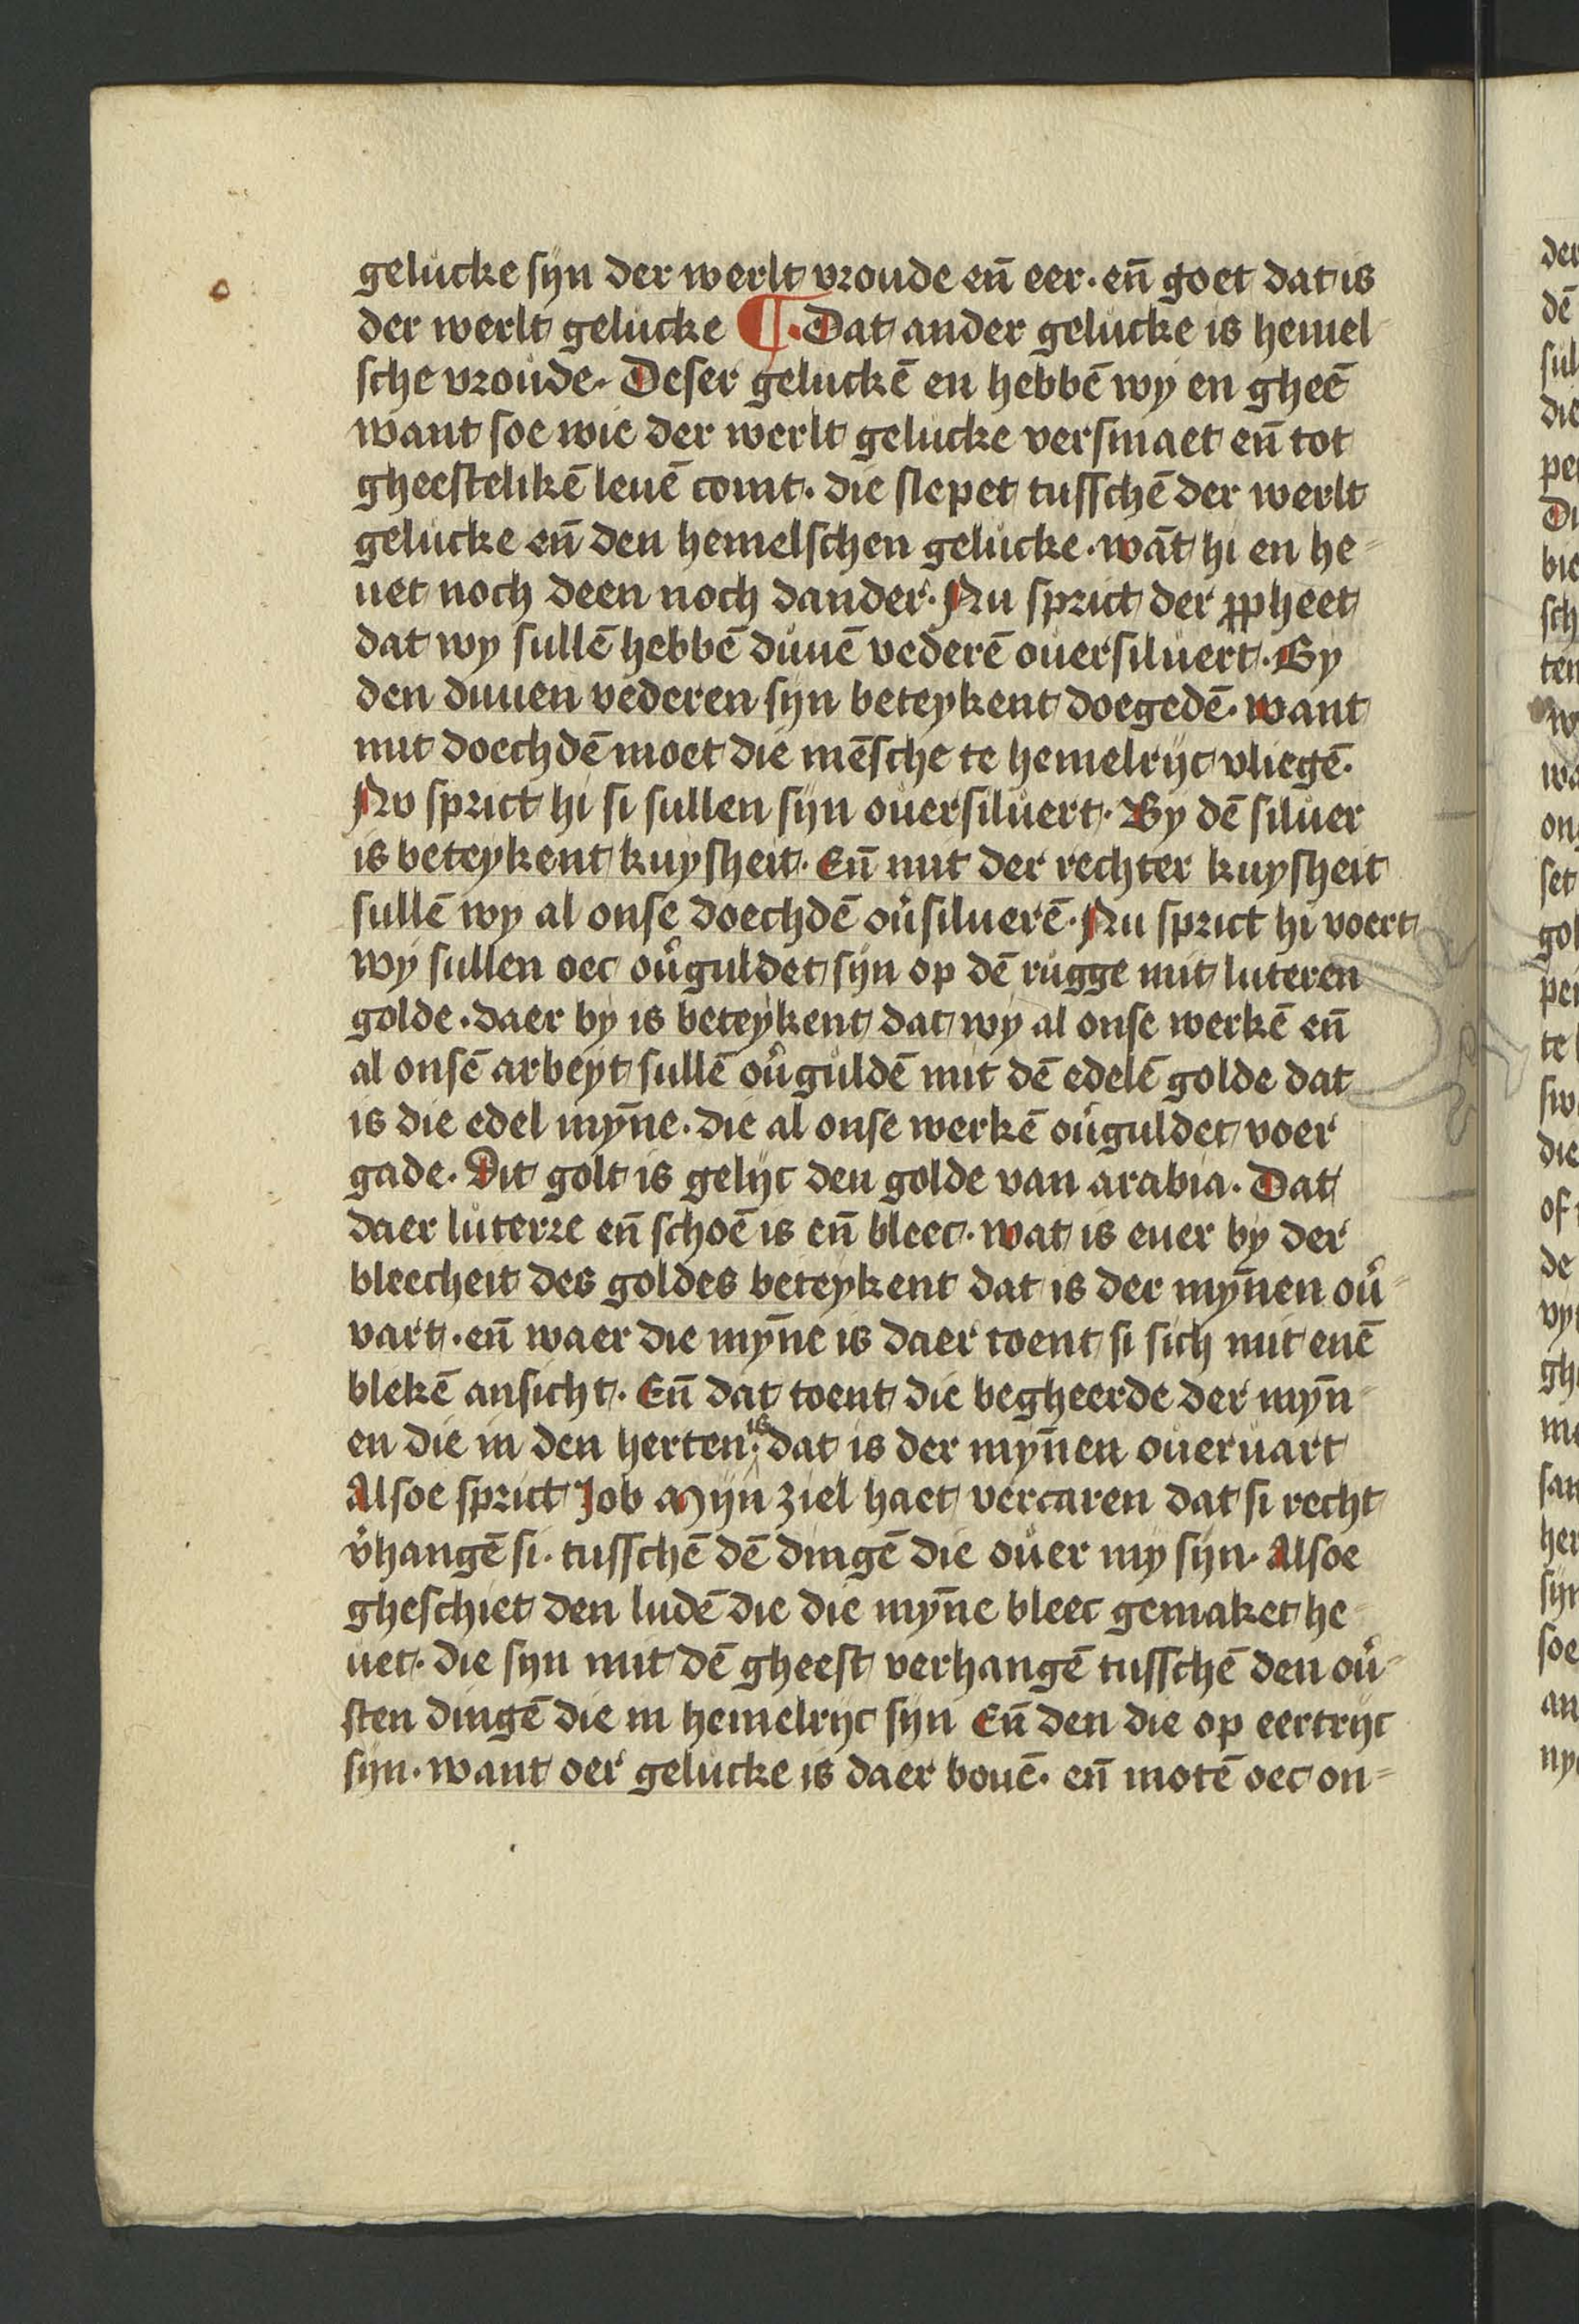 gelucke sijn der werlt vroude eñ eer · eñ goet dat is
der werlt gelucke ¶ · Dat ander gelucke is hemel
sche vroude · Deser geluckē en hebbē wy en gheē
want soe wie der werlt gelucke versmaet eñ tot
gheestelikē leuē comt · die slepet tusschē der werlt
gelucke eñ den hemelschen gelucke · wāt hi en he=
uet noch deen noch dander · Nu sprict der ꝓpheet
dat wy sullē hebbē duuē vederē ouersiluert · By
den duuen vederen sijn beteykent doegedē · want
mit doechdē moet die mēsche te hemelrijc vliegē ·
Nv sprict hi si sullen sijn ouersiluert · By dē siluer
is beteykent kuysheit · Eñ mit der rechter kuysheit
sullē wy al onse doechdē ou᷒siluerē · Nu sprict hi voert
wy sullen oec ou᷒guldet sijn op dē rugge mit luteren
golde · daer by is beteykent dat wy al onse werkē eñ
al onsē arbeyt sullē ou᷒guldē mit dē edelē golde dat
is die edel myn̄e · die al onse werkē ou᷒guldet voer
gade · Dit golt is gelijc den golde van arabia · Dat
daer luterre eñ schoē is eñ bleec · wat is euer by der
bleecheit des goldes beteykent dat is der myn̄en ou᷒=
vart · eñ waer die myn̄e is daer toent si sich mit enē
blekē ansicht · Eñ dat toent die begheerde der myn̄
en die in den herten is · dat is der myn̄en oueruart
Alsoe sprict Job Mijn ziel haet vercaren dat si recht
v᷒hangē si · tusschē dē dingē die ouer my sijn · Alsoe
gheschiet den ludē die die myn̄e bleec gemaket he
uet · die sijn mit dē gheest verhangē tusschē den ou᷒=
sten dingē die in hemelrijc sijn Eñ den die op eertrijc
sijn · want oer gelucke is daer bouē · eñ motē oec on=